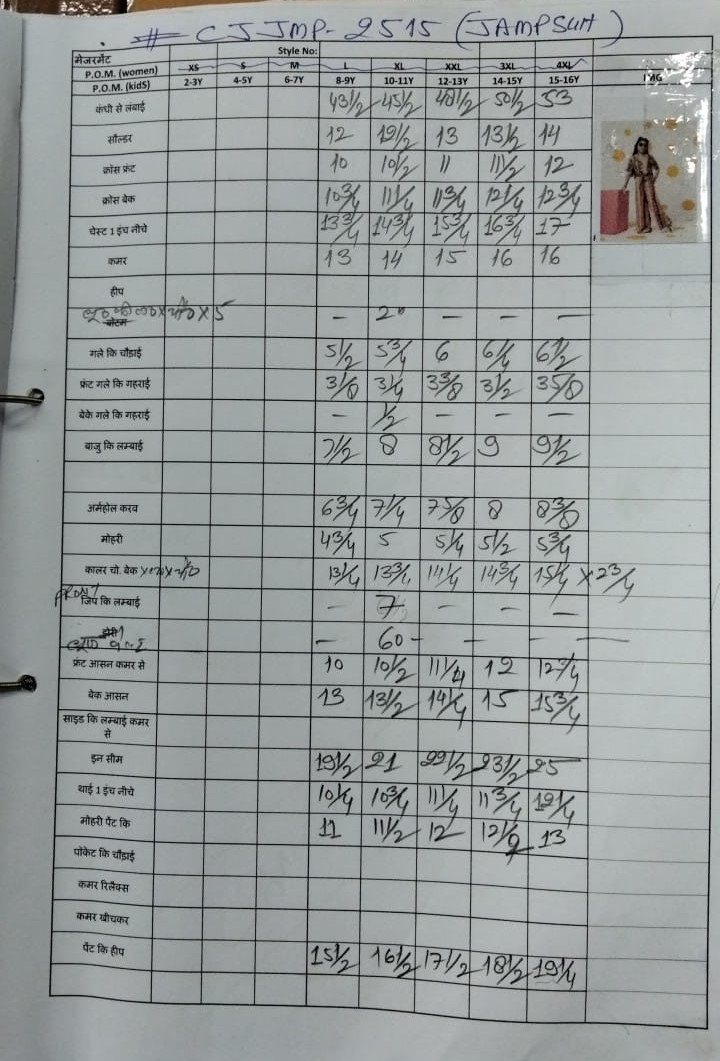 # CJJMP-2515 (JAMPSUM)
मेजरमेंट Style No:
P.O.M. (women) XS S M L XL XXL 3XL 4XL
P.O.M. (kidS) 2-3Y 4-5Y 6-7Y 8-9Y 10-11Y 12-13Y 14-15Y 15-16Y IMG
कंधी से लंबाई 43 1/2 45 1/2 48 1/2 50 1/2 53
सौल्डर 12 12 1/2 13 13 1/2 14
क्रॉस फ्रंट 10 10 1/2 11 11 1/2 12
क्रॉस बेक 10 3/4 11 1/4 11 3/4 12 1/4 12 3/4
चेस्ट 1 इंच नीचे 13 3/4 14 3/4 15 3/4 16 3/4 17
कमर 13 14 15 16 16
हीप
बोटम X 5 - 20 - - -
गले कि चौड़ाई 5 1/2 5 3/4 6 6 1/4 6 1/2
फ्रंट गले कि गहराई 3 1/8 3 1/4 3 3/8 3 1/2 3 5/8
बेके गले कि गहराई - 1/2 - - -
बाजु कि लम्बाई 7 1/2 8 8 1/2 9 9 1/2
अर्महोल करव 6 3/4 7 1/4 7 5/8 8 8 3/8
मोहरी 4 3/4 5 5 1/4 5 1/2 5 3/4
कालर चो. बेक 13 1/4 13 3/4 14 1/4 14 3/4 15 1/4 X 2 3/4
FRONT जिप कि लम्बाई - 7 - - -
डोरी - 60 - - - -
फ्रंट आसन कमर से 10 10 1/2 11 1/4 12 12 3/4
बेक आसन 13 13 1/2 14 1/4 15 15 3/4
साइड कि लम्बाई कमर
से
इन सीम 19 1/2 21 22 1/2 23 1/2 25
थाई 1 इंच नीचे 10 1/4 10 3/4 11 1/4 11 3/4 12 1/4
मोहरी पेंट कि 11 11 1/2 12 12 1/2 13
पॉकेट कि चौड़ाई
कमर रिलैक्स
कमर खीचकर
पेंट कि हीप 15 1/2 16 1/2 17 1/2 18 1/2 19 1/4